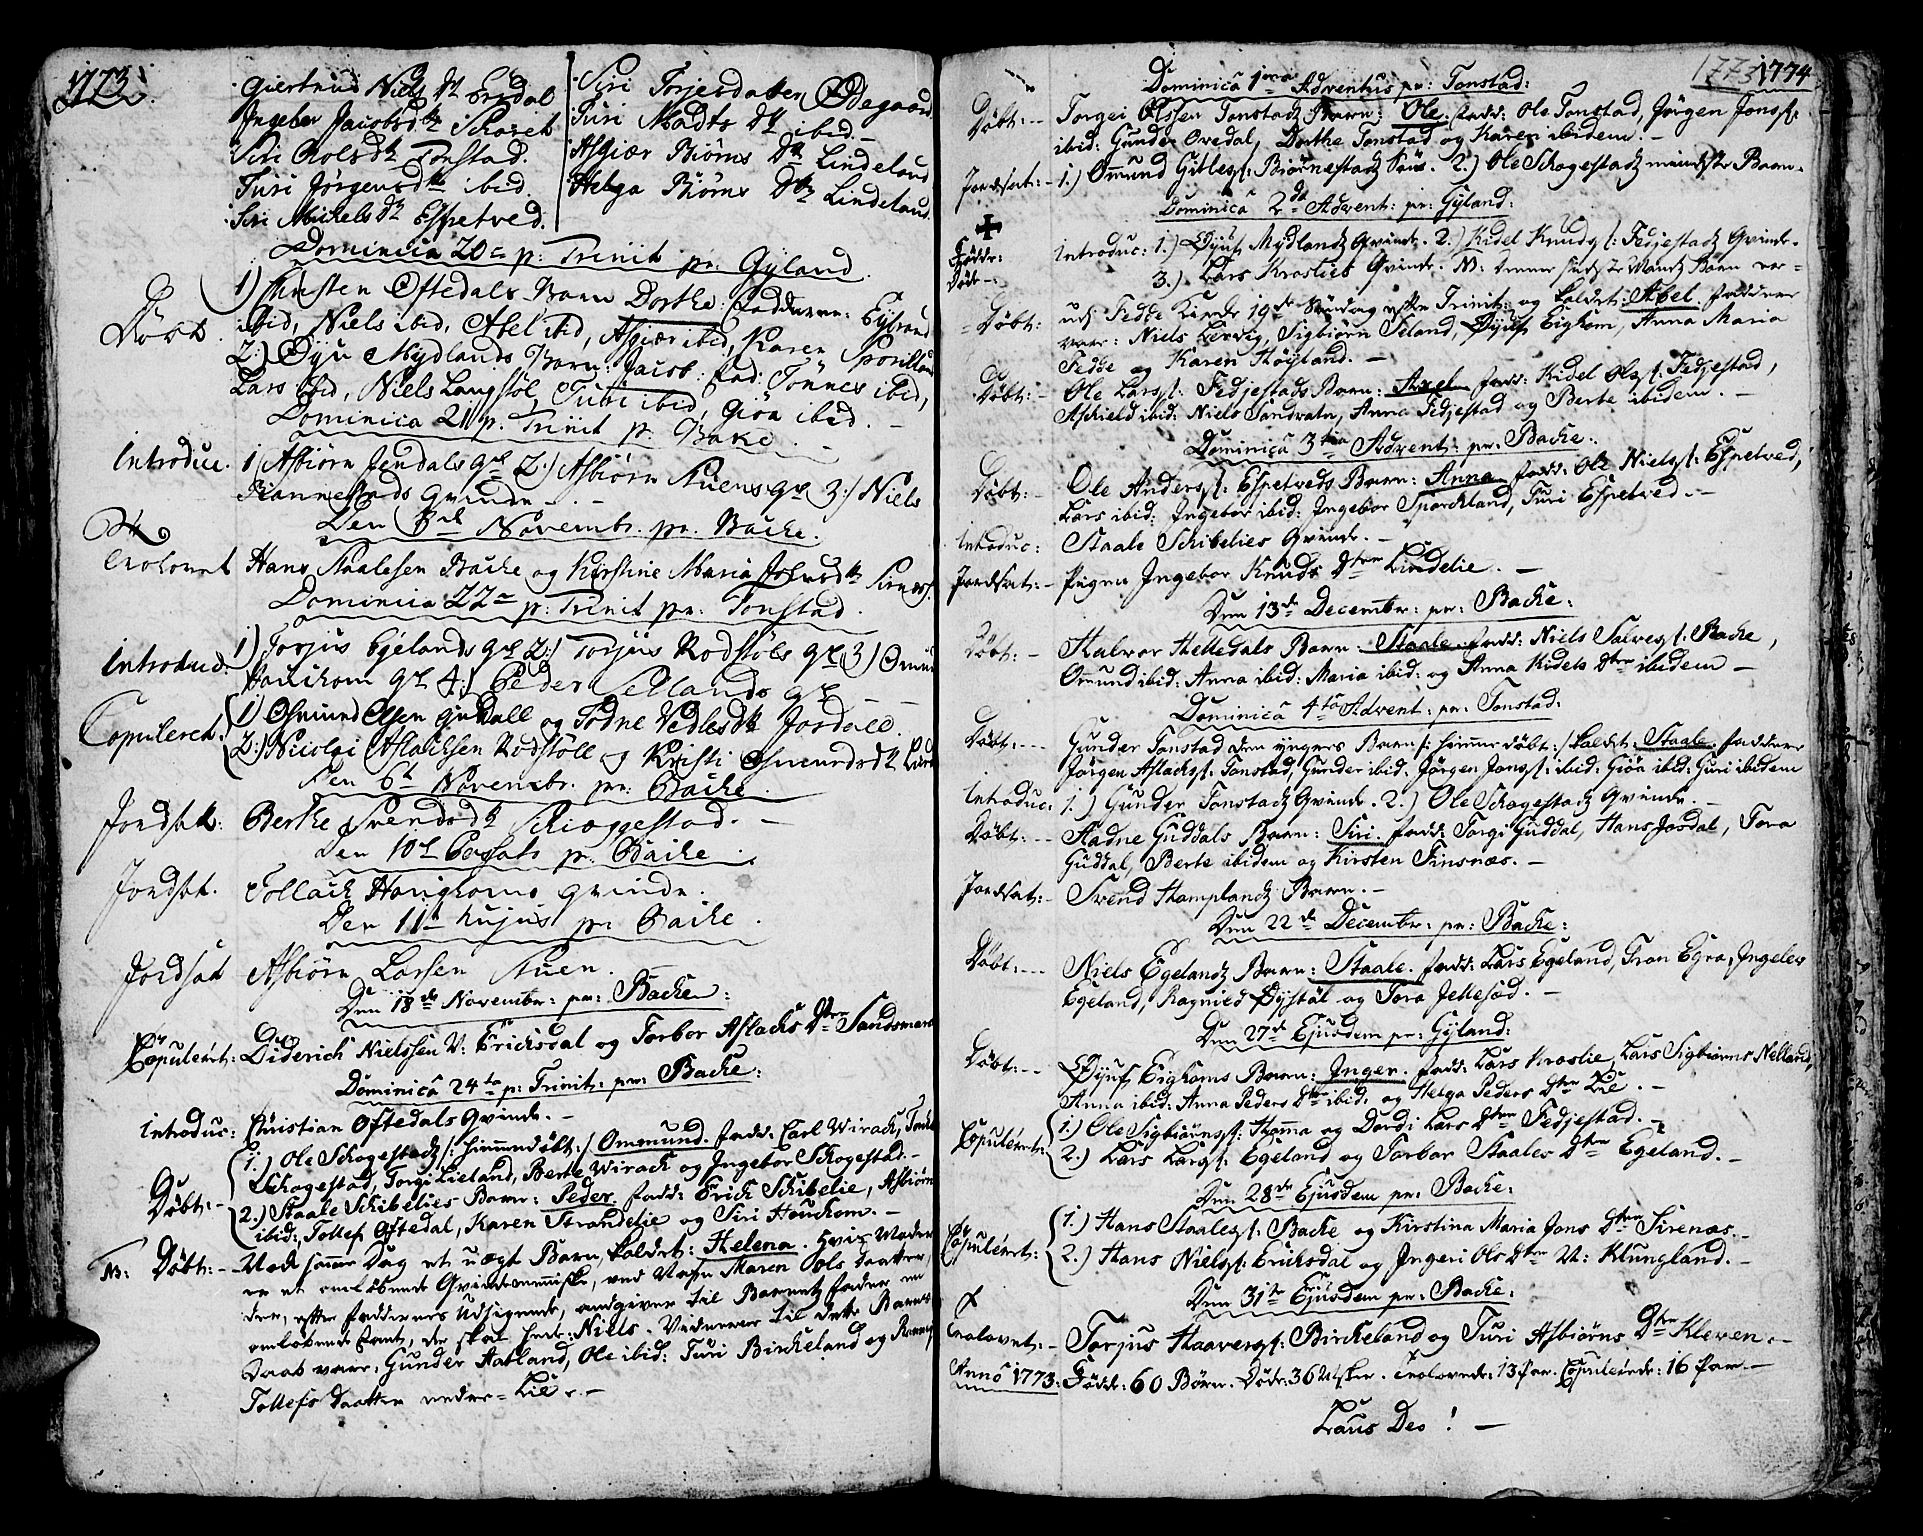 1773.
Giertrud Niels Dr Ersdal
Ingebor Jacobsdtr Scharet
Siri Roels Dr Tonstad.
Turi Jørgensdtr ibid.
Siri Michels Dr Espetved.
Siri Torjesdatter Ødegaard
Turi Madts Dr ibid. —
Asgiær Biørns Dr Lindeland
Helga Biørns Dr Lindeland.
Dominica 20de p: Trinit pr: Gyland.
Døbt. 1) Christen Oftedals Barn Dorthe: Fadderne: Eystend
ibid, Niels ibid, Abel ibid, Asgiær ibid, Karen
2) Øyu Mydlands Barn: Jacob: Fad: Tønnes ibid,
Lars ibid, Niels Langstøl, Turi ibid, Giøa ibid. —
Dominica 21 p. Trinit p. Bake.
Introduc. 1) Asbiørn Jendals qv. 2) Asbiørn Stuens qv 3) Niels
Biønnestads qvinde —
Den 3de Novembr. pr. Backe.
Trolovet Hans Staalesen Backe og Kirstine Maria Josdtr Sirnes.
Dominica 22de p: Trinit pr: Tonstad.
Introduc: 1) Torjus Egelands qv. 2) Torjus Rodstøls qv 3) Omund
Haucham qv. 4) Peder Sellands qv —
Copuleret: 1) Osmund Olsen Guddall og Todne Vedlesdr Josdall.
2) Nicolai Aslachsen Rodstøll og Kristi Osmundsdr
Den 6t Novembr. pr. Backe.
Jordsat: Berthe Svendsdr Schiæggestad. —
Den 10de pr. Backe.
Jordsat. Tollach Haughoms qvinde.
Den 11te hujus pr. Backe.
Jordsat Asbiørn Larsen Stuen.
Den 18de Novembr: pr: Backe:
Copuleret: Diderich Nielssen V: Ericksdal og Torbor Aslachs Dtter Sandsmark
Dominica 24ta p: Trinit: pr: Backe:
Introduc: Christian Oftedals Qvinde. —
Døbt: 1.) Ole Schogestads /: Hiemmedøbt: / Ommund. Fadd: Carl Wirach,
Schogestad, Torgi Lieland, Berte Wirach og Ingebor Schogestad. —
2.) Staale Schibelies Barn: Peder. Fadd: Erick Schibelie, Asbiørn
ibid:, Tollef Oftedal, Karen Strandelie og Siri Houckom. —
NB: Døbt: — Udi samme Dag et uægt Barn, kaldet: Helena. Hvis Moder
er et omløbende Qvindemenniske, ved Nafn Maren Ols Daatter,
der, efter Faddernes Udsigende, angiver til Barnets Fader en
omløbende Fant, der skal hede: Niels. Vidnerne til dette Barns
Daab vare: Gunder Aatland, Ole ibid: Turi Birckeland og
Tollefs Daatter nedre-Lie. —
1773 1774
Dominica 1ma Adventus pr: Tonstad:
Døbt: — Torgei Olssen Tonstads Barn: Ole. Fadd: Ole Tonstad, Jørgen Jons s:
ibid: Gunder Ovedal, Dorthe Tonstad og Karen ibidem. —
Jordsat: — 1.) Omund Gitles s: Biørnestads Søn. 2.) Ole Schogestads mindste Barn.
Dominica 2da Advent: pr: Gyland:
Introduc: 1.) Øyuf Mydlands Qvinde. 2.) Kidel Knuds s: Fedjestads Qvinde.
Fødde:
Døde —
3.) Lars Kroslies Qvinde. NB: Denne sidste Mands Barn var
Døbt: udj Fedde Kircke 19de Søndag efter Trinit: og kaldet: Abel. Fadderne
vare: Niels Lervig, Sigbiørn Seland, Øyuf Eighom, Anna Maria
Fedde og Karen Høyland. —
Døbt: — Ole Lars s: Fedjestads Barn: Axel. Fadd: Kidel Ols s: Fedjestad,
Aschield ibid: Niels Sandvatn, Anna Fedjestad og Berte ibidem. —
Dominica 3tia Advent: pr: Backe:
Døbt: — Ole Anders s: Espetveds Barn: Anna. Fadd: Ole Niels s: Espetved,
Lars ibid: Ingebor ibid: Ingebor Sporckland, Turi Espetved. —
Introduc: Staale Schibelies Qvinde. —
Jordsat: — Pigen Ingebor Knuds Dtter Lindelie. —
Den 13de Decembr: pr: Backe:
Døbt: — Halvor Helledals Barn: Staale. Fadd: Niels Salves s: Backe,
Omund ibid: Anna ibid: Maria ibid: og Anna Kidels Dtter ibidem —
Dominica 4ta Advent: pr: Tonstad:
Døbt: — Gunder Tonstad den yngers Barn /: Hiemmedøbt: / kaldet: Staale. Faddere
Jørgen Aslachs s: Tonstad, Gunder ibid: Jørgen Jons s: ibid: Giøa ibid: Guri ibidem
Introduc: 1.) Gunder Tonstads Qvinde. 2.) Ole Schogestads Qvinde. —
Døbt: — Aadne Guddals Barn: Siri. Fadd: Torgi Guddal, Hans Josdal, Tora
Guddal, Berte ibidem og Kirsten Finsnæs. —
Jordsat: — Svend Hamplands Barn. —
Den 22de Decembr: pr: Backe:
Døbt: — Niels Egelands Barn: Staale. Fadd: Lars Egeland, Tron Egra, Ingelev
Egeland, Ragnild Øystøl og Tora Jellesød. —
Den 27de Ejusdem pr: Gyland:
Døbt: — Øyuf Eighoms Barn: Inger. Fadd: Lars Kroslie, Lars Sigbiørns Nelland,
Anna ibid: Anna Peders Dtter ibid: og Helga Peders Dtter Lie. —
Copuleret: 1.) Ole Sigbiørns s: Hamma og Dordi Lars Dtter Fedjestad. —
2.) Lars Lars s: Egeland og Torbor Staales Dtter Egeland. —
Den 28de Ejusdem pr: Backe:
Copuleret: 1.) Hans Staales s: Backe og Kirstina Maria Jons Dtter Sirenæs. —
2.) Hans Niels s: Ericksdal og Ingeri Ols Dtter V: Klungland. —
Den 31te Ejusdem pr: Backe:
Trolovet: — Torjus Haavers s: Birckeland og Turi Asbiørns Dtter Kleven. —
Anno 1773: Fødde: 60 Børn. Døde: 36 Msker. Trolovede: 13 Par. Copulerede: 16 Par. —
Laus Deo! —